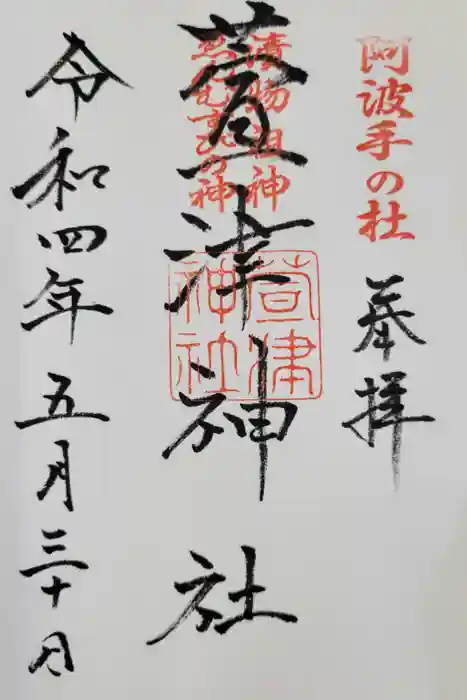 阿波手の杜
奉拝
漬物祖神
萱津神社
萱津神社
の神
令和四年五月三十日